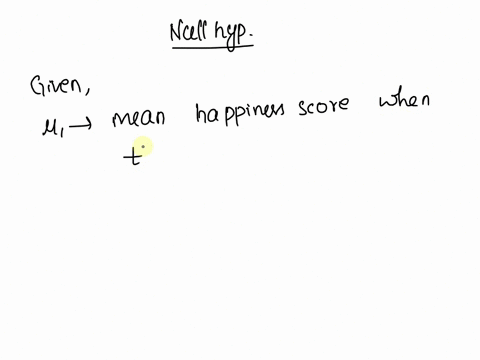 Null hyp.
Given,
μ₁ → mean happiness score when
t